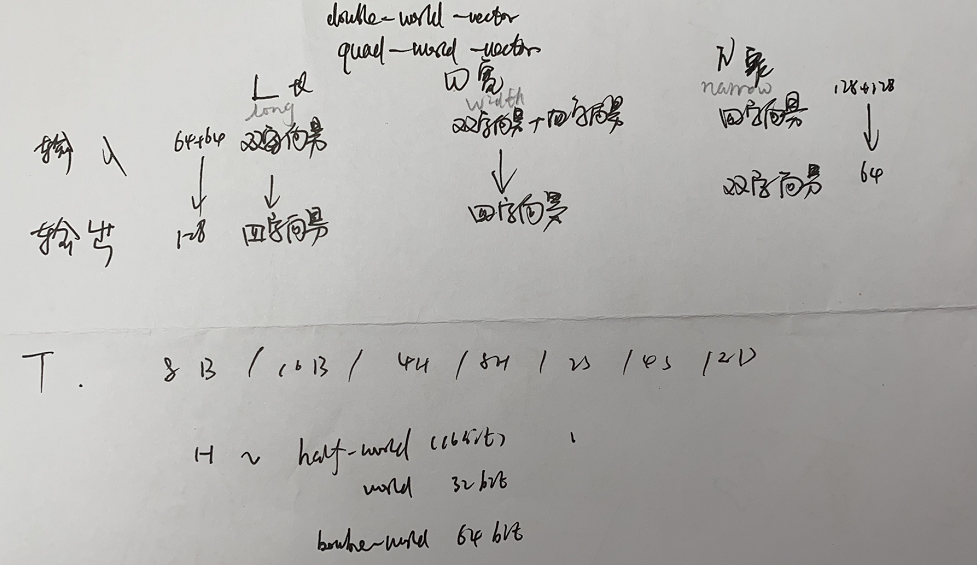 double-world-vector
quad-world-vector
L 长 W 宽 N 窄
long width narrow 128+128
输入 64+64 双字向量 双字向量+四字向量 四字向量
输出 128 四字向量 四字向量 双字向量 64
T. 8B / 16B / 4H / 8H / 2S / 4S / 2D
H ~ half-world (16bit)
world 32bit
double-world 64bit